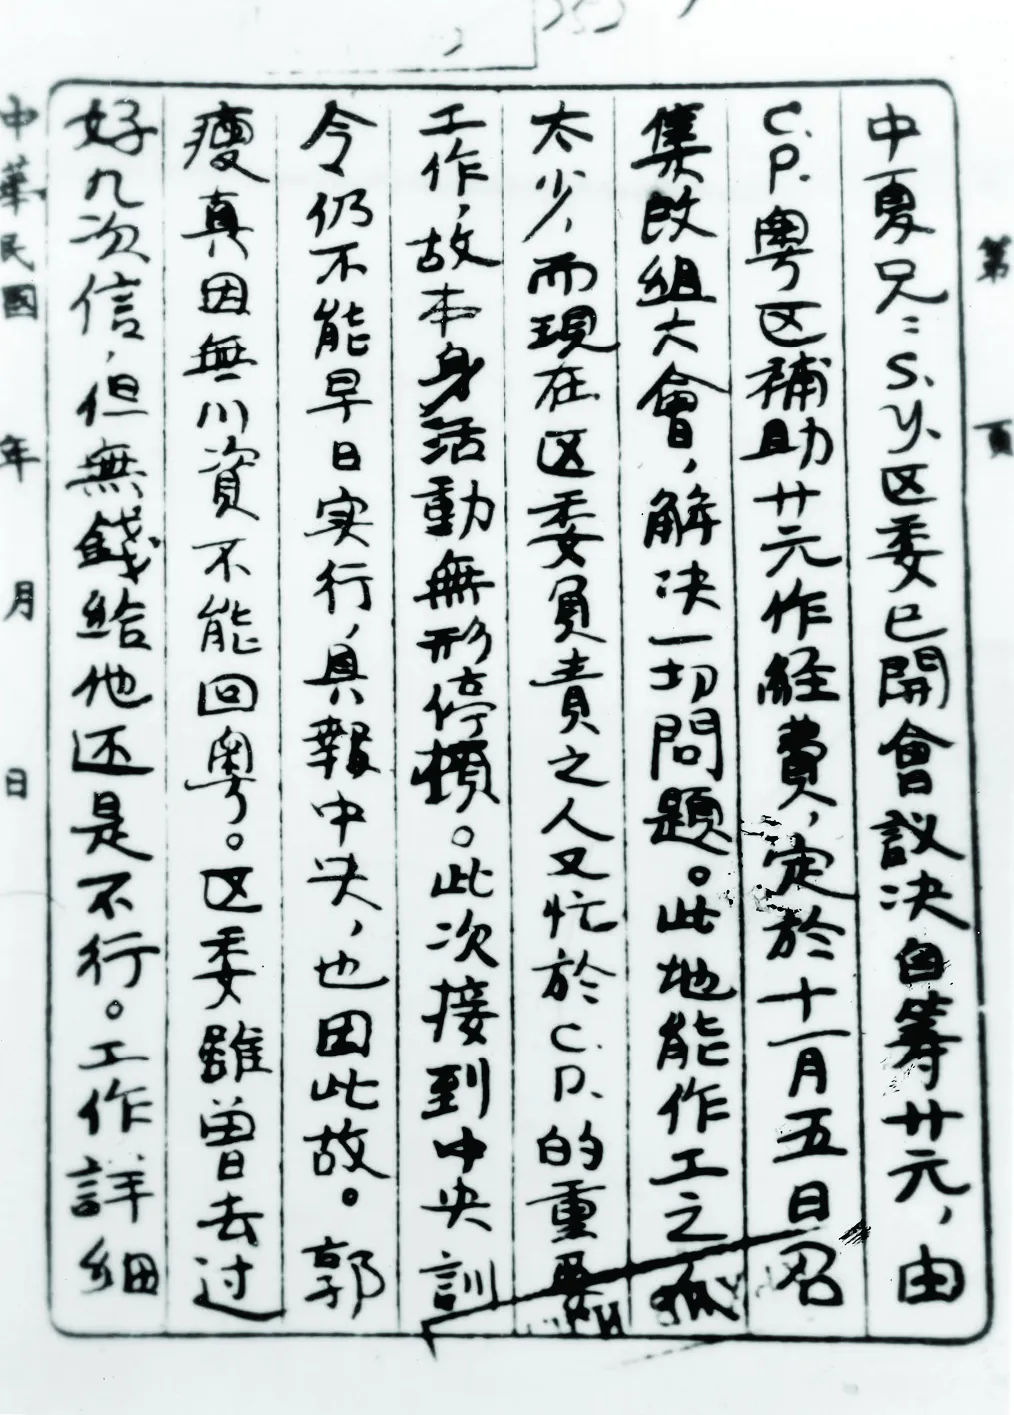 第 頁
中夏兄：S.Y.区委已開會議决自筹廿元，由
C.P.粤区補助廿元作経費，定於十一月五日召
集改組大會，解决一切問題。此地能作工之
太少，而現在区委負責之人又忙於C.P.的重要
工作，故本身活動無形停頓。此次接到中央訓
令仍不能早日实行，具報中央，也因此故。郭
瘦真因無川資不能回粤。区委雖曾去过
好几次信，但無錢給他还是不行。工作詳細
中華民國 年 月 日